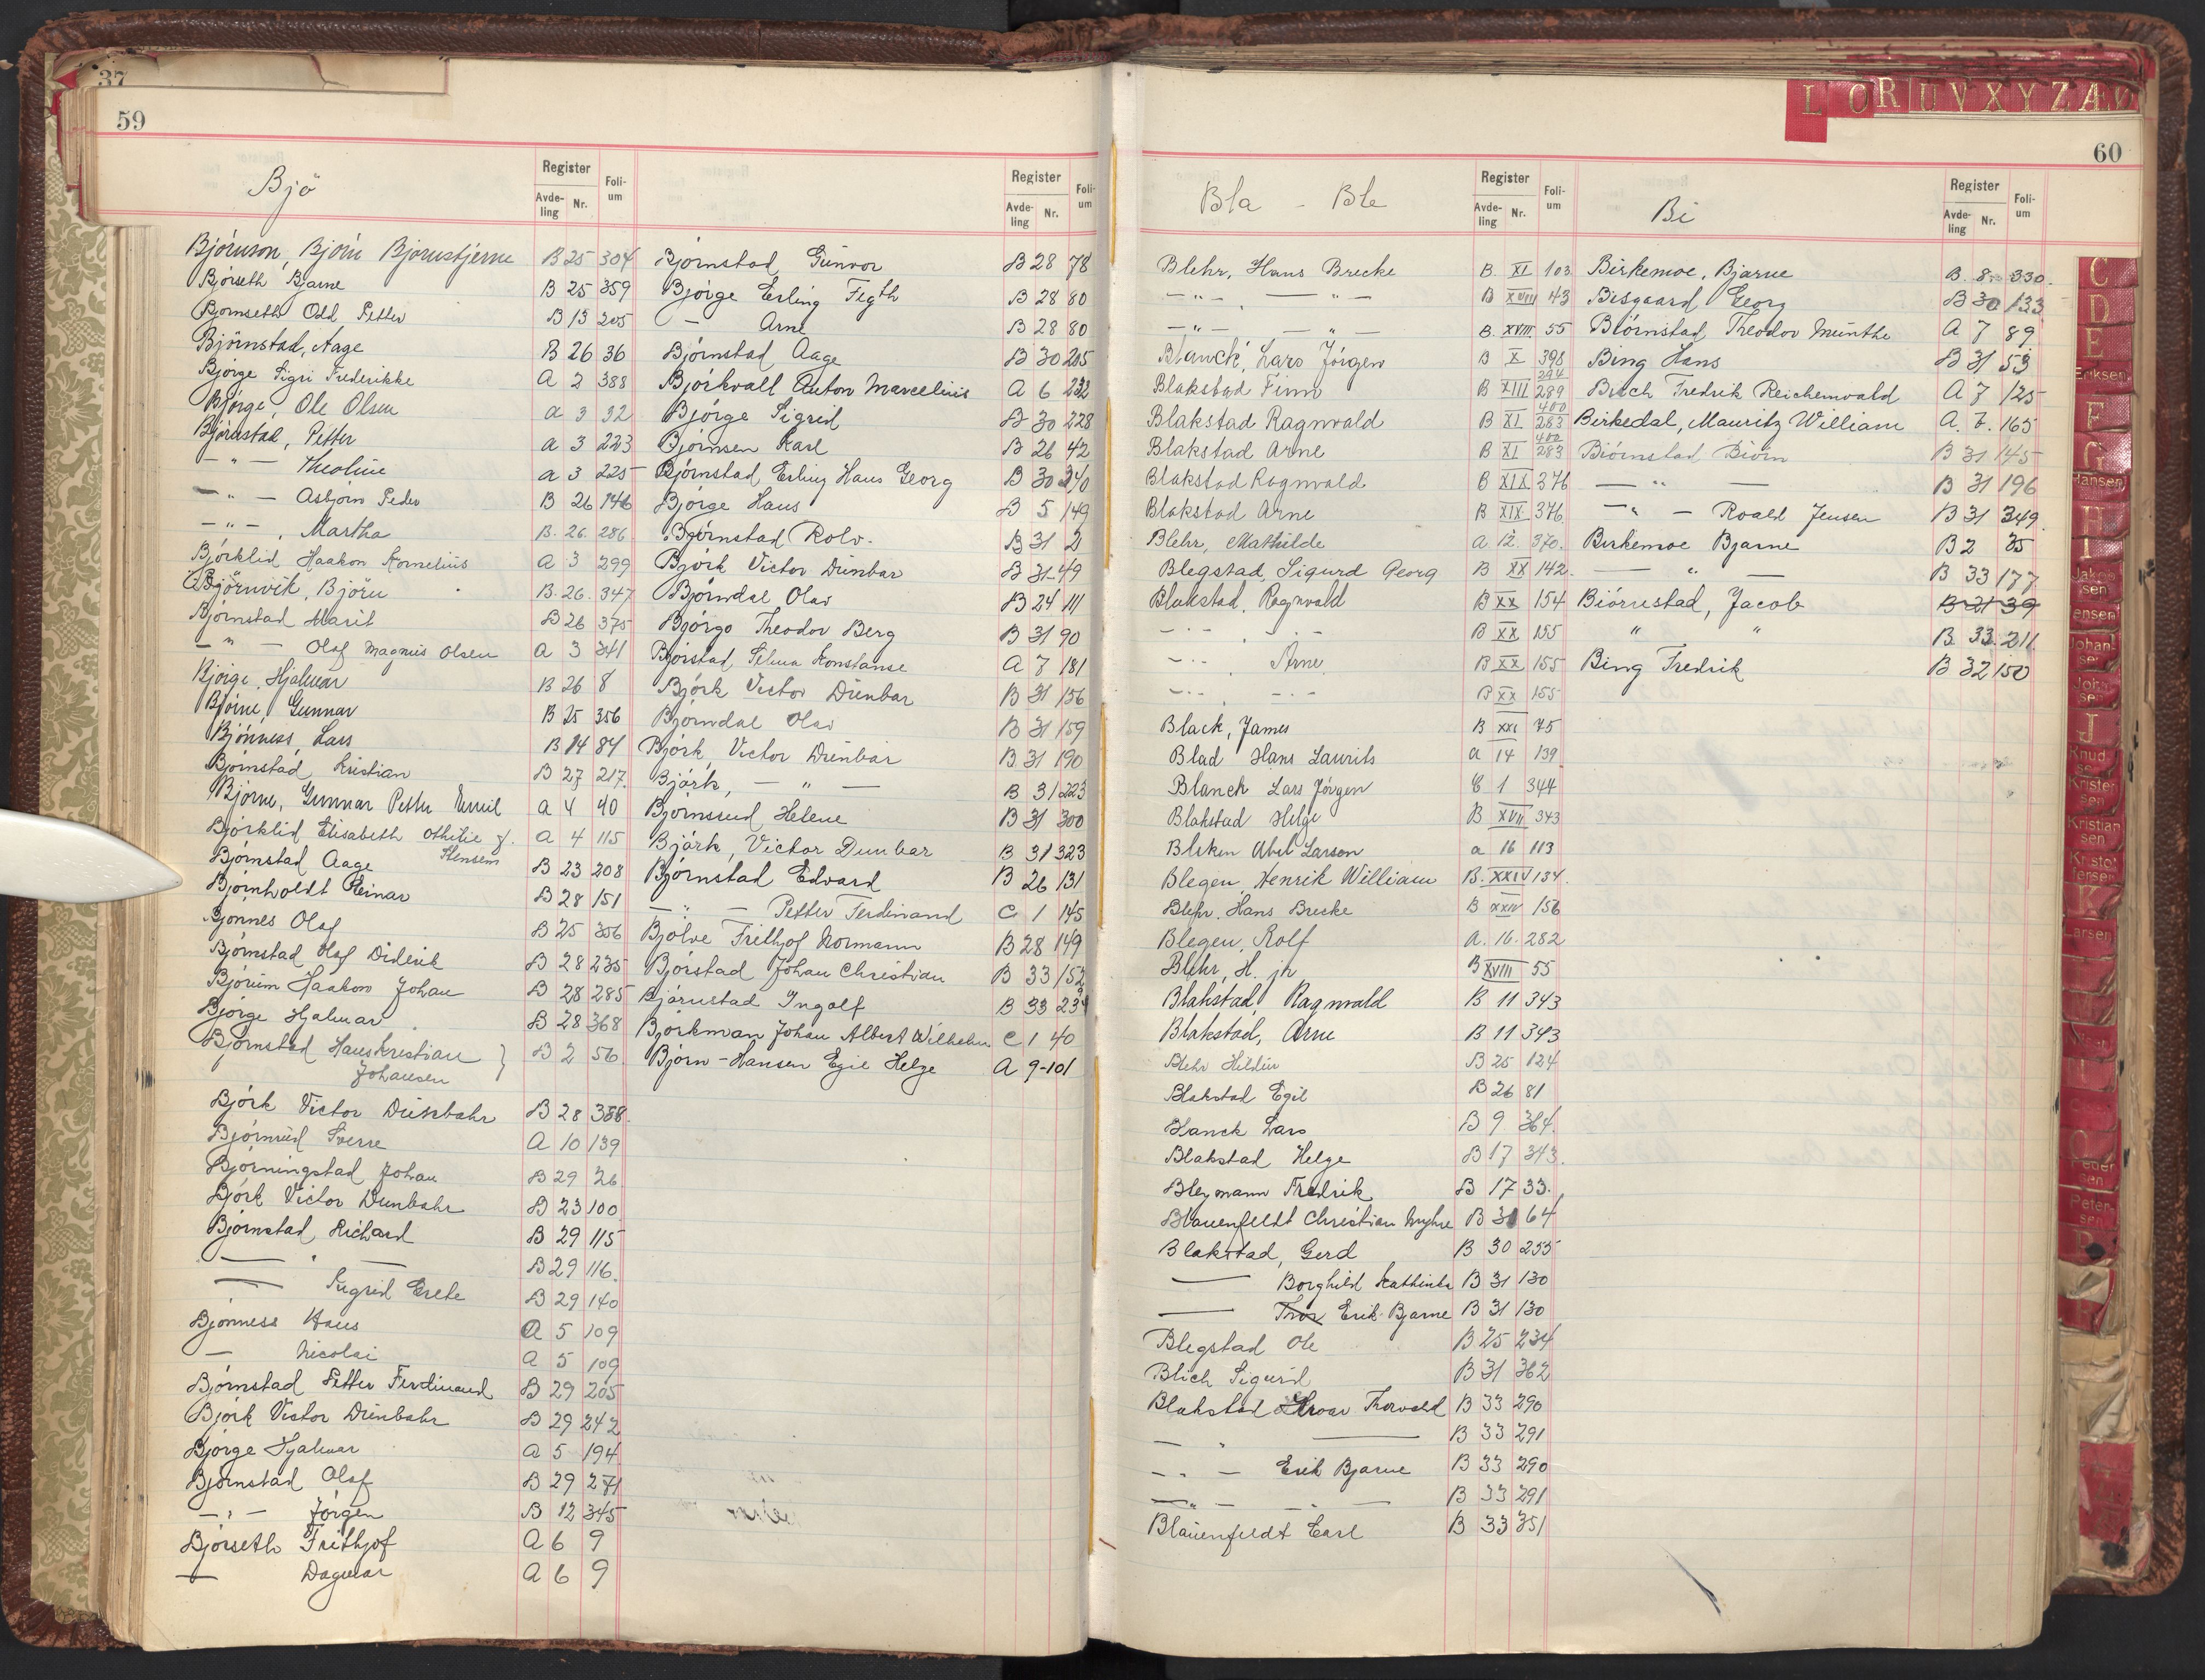 37
59
Bjö
Register
Avde-
ling
Nr.
Foli-
um
Bjørnson, Bjørn Bjørnstjerne B 25 304
Bjørseth Bjarne B 25 359
Bjørnseth Odd Petter B 13 205
Björnstad, Aage B 26 36
Bjørge Sigri Frederikke A 2 388
Bjørge, Ole Olsen a 3 32
Bjørnstad, Petter a 3 223
— " — Theoline a 3 225
— " — Asbjørn Peder B 26 146
— " — , Martha B. 26. 286
Bjørklid Haakon Kornelius A 3 299
Björnvik, Björn B. 26. 347
Bjørnstad Marit B 26 375
— " — Olaf Magnus Olsen A 3 341
Bjørge, Hjalmar B 26 8
Bjørne, Gunnar B 25 356
Bjønness, Lars B 14 84
Bjørnstad, Kristian B 27 217.
Bjørne, Gunnar Petter Emil a 4 40
Bjørklid, Elisabeth Othilie f. A 4 115
Stensen
Bjørnstad Aage B 23 208
Bjørnholdt Reinar B 28 151
Bjønnes Olaf B 25 356
Bjørnstad Olaf Diderik B 28 235
Bjørum Haakon Johan B 28 285
Bjørge Hjalmar B 28 368
Bjørnstad Hans Kristian } B 2 56
Johansen
Björk Victor Dunbahr B 28 388.
Bjørnrud Sverre A 10 139
Bjørningstad Johan B 29 26
Björk Victor Dunbahr B 23 100
Bjørnstad Richard B 29 115
— " — B 29 116.
— Sigrid Grete B 29 140
Bjønness Hans A 5 109
— Nicolai A 5 109
Bjørnstad Petter Ferdinand B 29 205
Björk Victor Dunbahr B 29 242
Bjørge Hjalmar A 5 194
Bjørnstad Olaf B 29 271
— " — Jørgen B 12 345
Bjørseth Frithjof A 6 9
— Dagmar A 6 9
Register
Avde-
ling
Nr.
Foli-
um
Bjørnstad Gunvor B 28 78
Bjørge Erling Fegth B 28 80
— Arne B 28 80
Bjørnstad Aage B 30 205
Bjørkvall Anton Marcelius A 6 232
Bjørge Sigrid B 30 228
Bjørnsen Karl B 26 42
Bjørnstad Erling Hans Georg B 30 340
Bjørge Hans B 5 149
Bjørnstad Rolv. B 31 2
Bjørk Victor Dunbar B 31 49
Bjørndal Olav B 24 111
Bjørgo Theodor Berg B 31 90
Bjørstad, Selma Konstanse A 7 181
Björk Victor Dunbar B 31 156
Bjørndal Olav B 31 159
Björk, Victor Dunbar B 31 190
Björk, — " — B 31 223
Bjørnsrud, Helene B 31 300
Björk, Victor Dunbar B 31 323
Bjørnstad Edvard B 26 131
— " — Petter Ferdinand C 1 145
Bjølve Frithjof Normann B 28 149
Bjørstad Johan Christian B 33 152
Bjørnstad Ingolf B 33 234
Björkman Johan Albert Wilhelm C 1 40
Bjørn-Hansen Egil Helge A 9-101
L O R U V X Y Z Æ Ø
60
Bla - Ble
Register
Avde-
ling
Nr.
Foli-
um
Blehr, Hans Brecke B. XI 103
— " — . — " — B XVIII 43
— " — — " — B. XVIII 55
Blanck, Lars Jörgen B X 398
294
Blakstad Finn B XIII 289
400
Blakstad Ragnvald B XI 283
400
Blakstad Arne B XI 283
Blakstad Ragnvald B XIX 376
Blakstad Arne B XIX 376
Blehr, Mathilde a. 12. 370.
Blegstad, Sigurd Georg B XX 142.
Blakstad, Ragnvald B XX 154
— " — . — " — B XX 155
— " — Arne B XX 155
— " — — " — B XX 155
Black, James B XXI 75
Blad Hans Laurits a 14 139
Blanck Lars Jörgen C 1 344
Blakstad Helge B XVII 343
Bleken Abel Larson a 16 113
Blegen, Henrik William B. XXIV 134.
Blehr, Hans Brecke B XXIV 156
Blegen, Rolf A. 16. 282
Blehr, H. jr B XVIII 55
Blakstad, Ragnvald B 11 343
Blakstad, Arne B 11 343
Blehr Hildur B 25 124
Blakstad Egil B 26 81
Blanck Lars B 9 364.
Blakstad Helge B 17 343.
Bleymann Fredrik B 17 33.
Blauenfeldt Christian Myhre B 31 64
Blakstad, Gerd B 30 255
— Borghild Kathinka B 31 130
— Thor Erik Bjarne B 31 130
Blegstad Ole B 25 234
Blich Sigurd B 31 362
Blakstad Hroar Thorvald B 33 290
— " — B 33 291
— " — Erik Bjarne B 33 290
— " — — " — B 33 291
Blauenfeldt Carl B 33 351
Bi
Register
Avde-
ling
Nr.
Foli-
um
Birkemoe, Bjarne B. 8 330.
Bisgaard Georg B 30 133
Biörnstad, Theodor Munthe A 7 89
Bing Hans B 31 53
Birch Fredrik Reichenwald A 7 125
Birkedal, Mauritz William A. 7. 165
Biörnstad Biörn B 31 145
— " — B 31 196
— " — Roald Jensen B 31 349.
Birkemoe Bjarne B 2 35
— " — B 33 177
Biørnstad, Jacob B 21 39
" " B 33. 211.
Bing Fredrik B 32 150
C
D
E
Eriksen
F
G
Hansen
H
I
Jakob
sen
Jensen
Johan-
sen
John
sen
J
Knud
sen
Krister
sen
Kristian
sen
Kristof
fersen
K
Larsen
Peder
sen
Peter-
sen
P